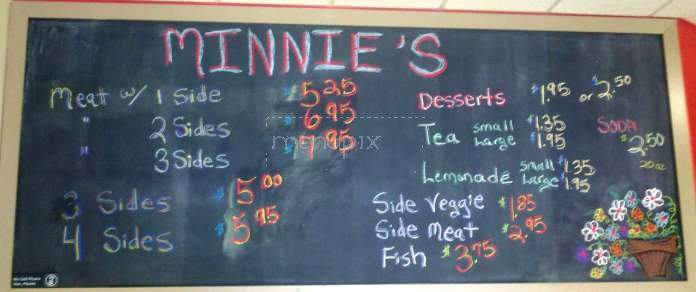 MINNIE'S
Meat w/ 1 Side $5.25
" 2 Sides $6.95
" 3 Sides $7.95
3 Sides $5.00
4 Sides $5.95
Desserts $1.95 or $2.50
Tea small $1.35
Large $1.95
SODA $2.50
20oz
Lemonade small $1.35
Large $1.95
Side Veggie $1.85
Side Meat $2.95
Fish $3.75
menupix